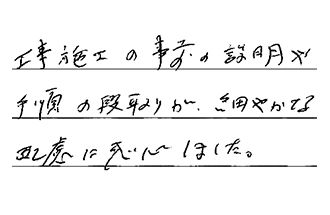 工事施工の事前の説明や
手順の段取りが、細やかな
配慮に感心しました。